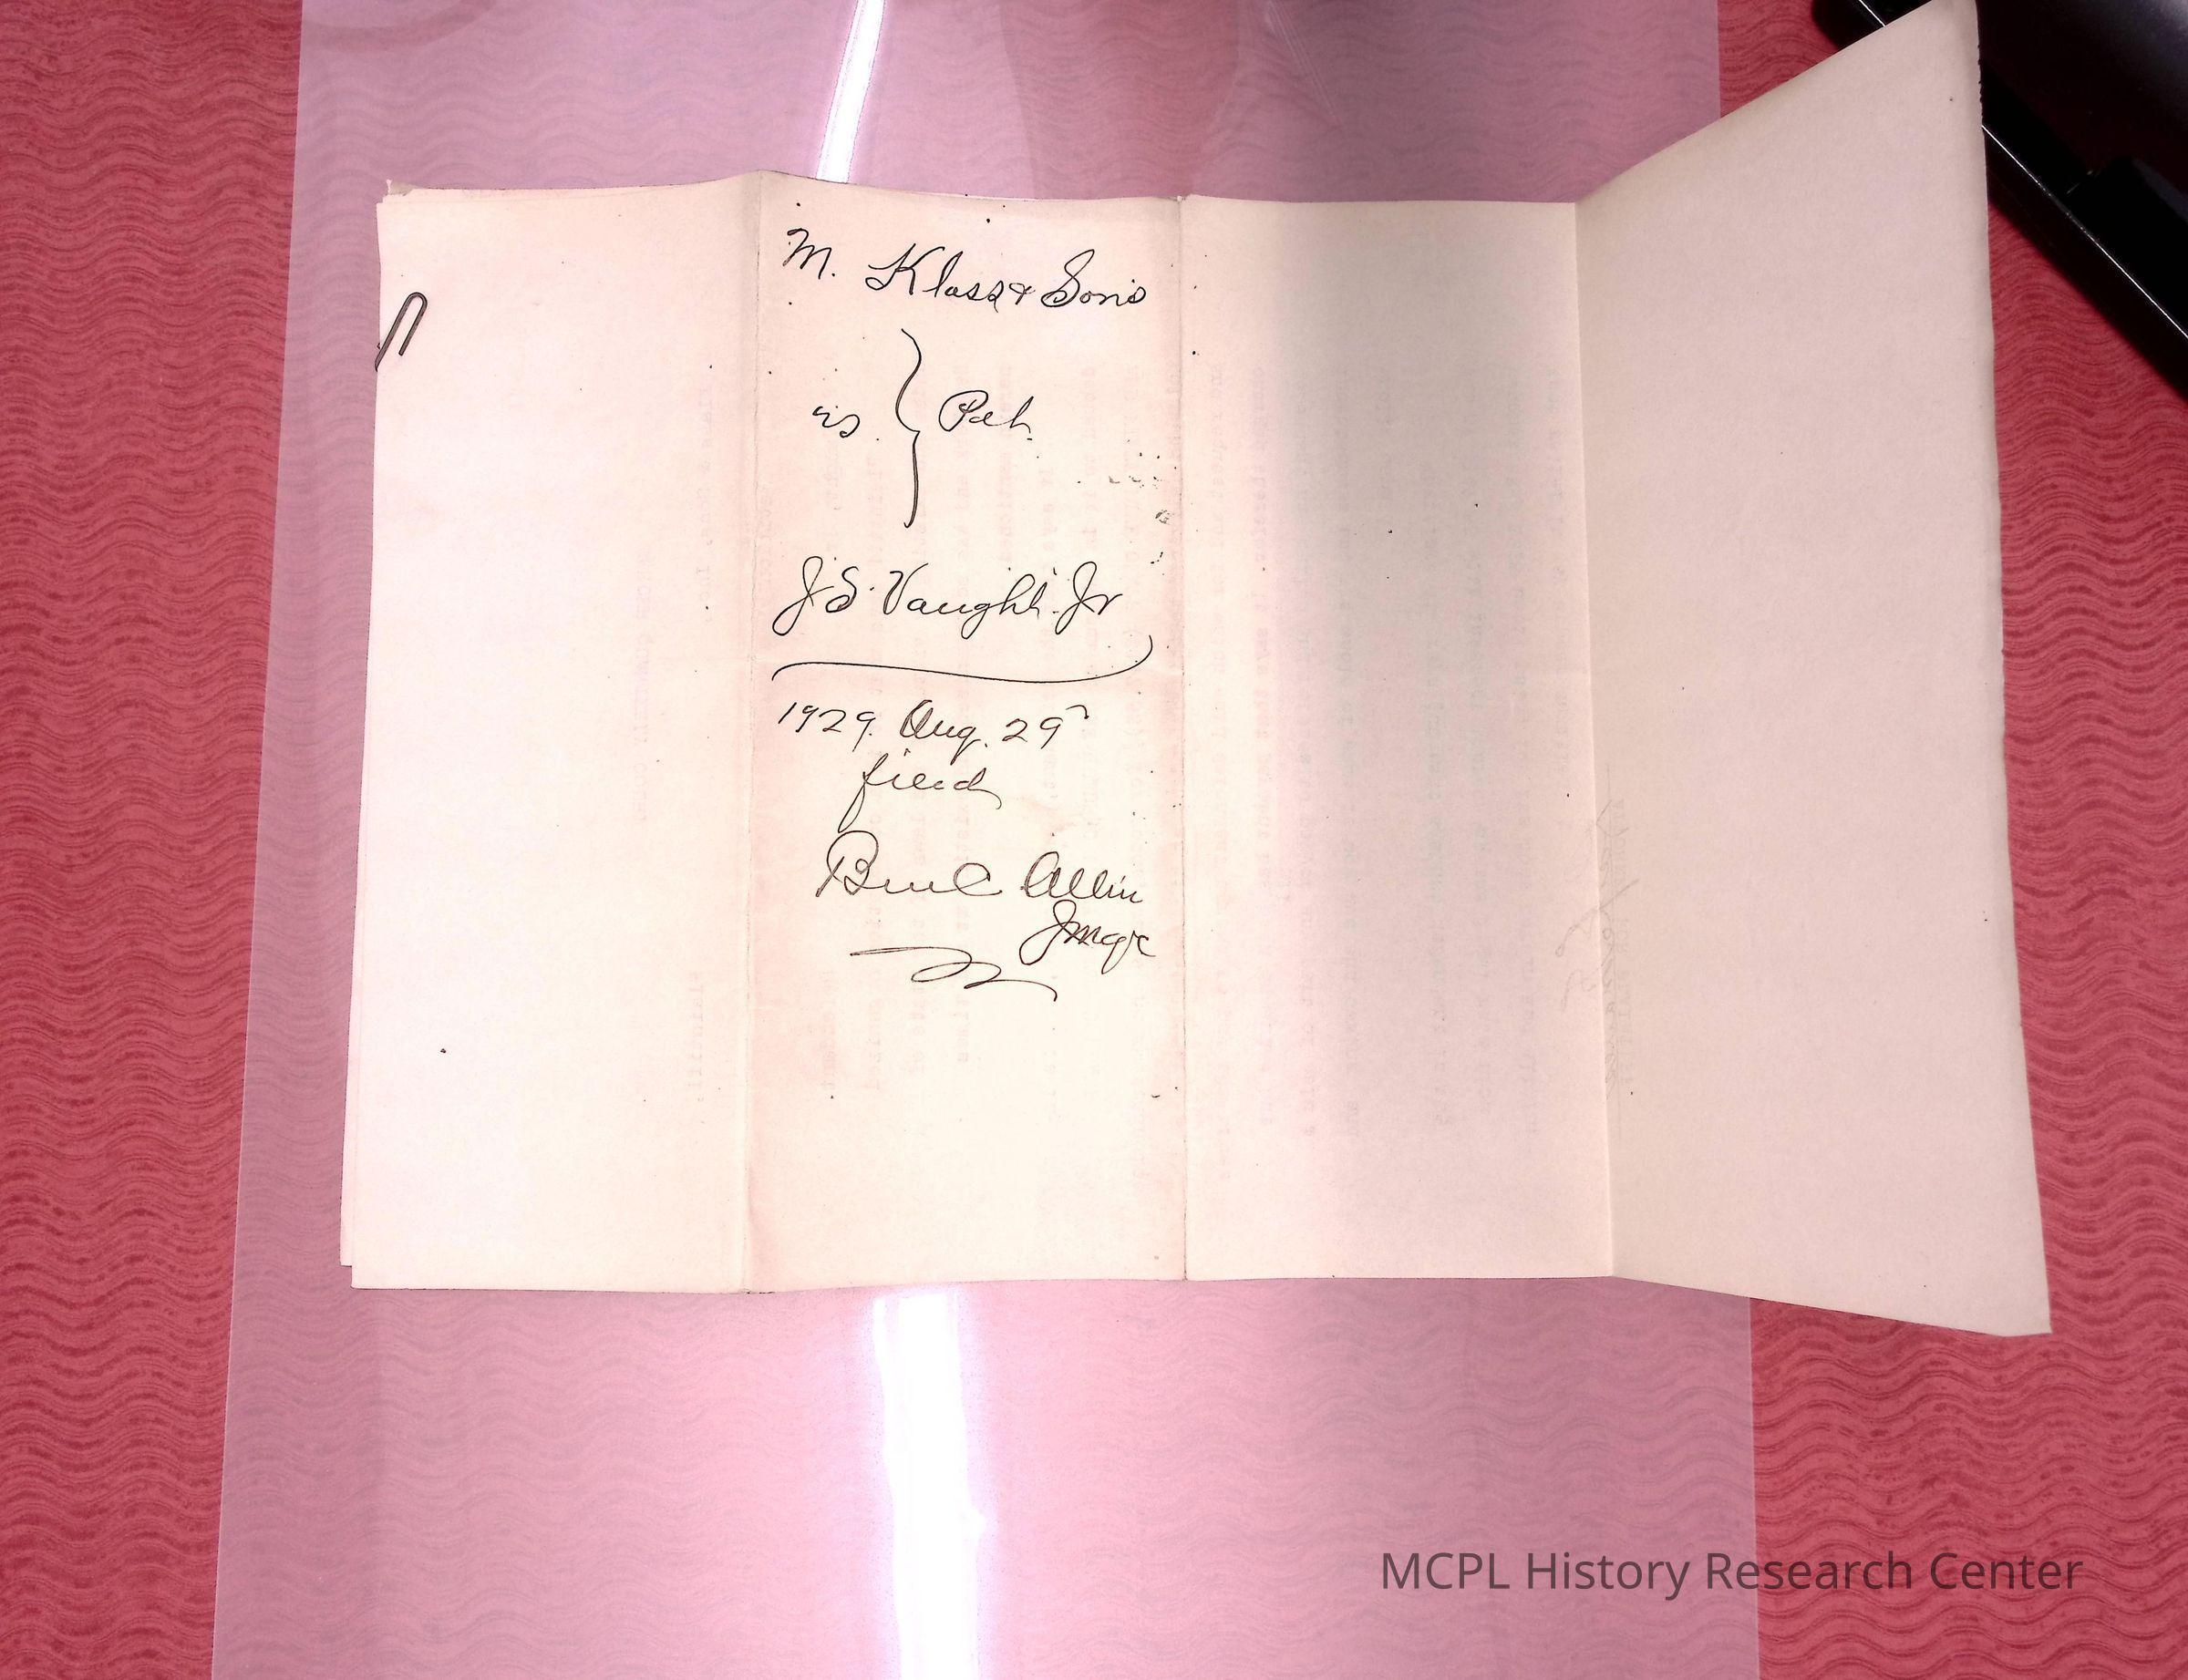 M. Klass & Sons
vs } Pet.
J.S. Vaught Jr
1929. Aug. 29
filed
Ben C Allin
MCPL History Research Center